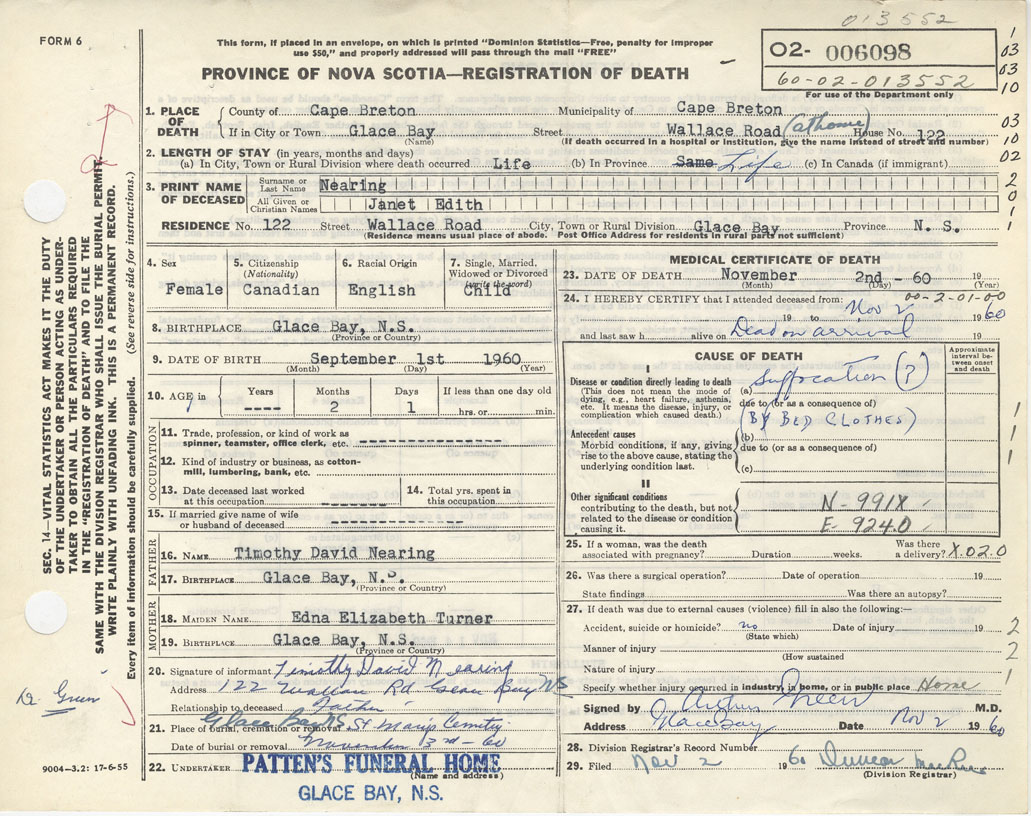 013552
FORM 6
This form, if placed in an envelope, on which is printed "Dominion Statistics—Free, penalty for improper
use $50," and properly addressed will pass through the mail "FREE"
PROVINCE OF NOVA SCOTIA—REGISTRATION OF DEATH
02- 006098
60-02-013552
For use of the Department only
1
03
03
10
03
10
02
2
0
1
1
1. PLACE OF DEATH
County of Cape Breton Municipality of Cape Breton
If in City or Town Glace Bay Street Wallace Road (at home) House No. 122
(Name) (If death occurred in a hospital or institution, give the name instead of street and number)
2. LENGTH OF STAY (in years, months and days)
(a) In City, Town or Rural Division where death occurred Life (b) In Province Same Life (c) In Canada (if immigrant)
3. PRINT NAME OF DECEASED
Surname or Last Name Nearing
All Given or Christian Names Janet Edith
RESIDENCE No. 122 Street Wallace Road City, Town or Rural Division Glace Bay Province N. S.
(Residence means usual place of abode. Post Office Address for residents in rural parts not sufficient)
4. Sex
Female
5. Citizenship
(Nationality)
Canadian
6. Racial Origin
English
7. Single, Married,
Widowed or Divorced
(write the word)
Child
8. BIRTHPLACE Glace Bay, N.S.
(Province or Country)
9. DATE OF BIRTH September 1st 1960
(Month) (Day) (Year)
10. AGE in
Years Months Days If less than one day old
---- 2 1 hrs. or min.
OCCUPATION
11. Trade, profession, or kind of work as
spinner, teamster, office clerk, etc.
12. Kind of industry or business, as cotton-
mill, lumbering, bank, etc.
13. Date deceased last worked
at this occupation
14. Total yrs. spent in
this occupation
15. If married give name of wife
or husband of deceased
FATHER
16. NAME Timothy David Nearing
17. BIRTHPLACE Glace Bay, N.S.
(Province or Country)
MOTHER
18. MAIDEN NAME Edna Elizabeth Turner
19. BIRTHPLACE Glace Bay, N.S.
(Province or Country)
20. Signature of informant Timothy David Nearing
Address 122 Wallace Rd Glace Bay NS
Relationship to deceased Father
21. Place of burial, cremation or removal Glace Bay NS St Marys Cemetry
Date of burial or removal November 3rd - 60
22. UNDERTAKER PATTEN'S FUNERAL HOME
(Name and address)
GLACE BAY, N.S.
MEDICAL CERTIFICATE OF DEATH
23. DATE OF DEATH November 2nd - 60 19
(Month) (Day) (Year)
24. I HEREBY CERTIFY that I attended deceased from: 00-2-01-00
19 to Nov 2 1960
and last saw h alive on Dead on arrival 19
CAUSE OF DEATH
Approximate interval between onset and death
I
Disease or condition directly leading to death
(This does not mean the mode of
dying, e.g., heart failure, asthenia,
etc. It means the disease, injury, or
complication which caused death.)
(a) Suffocation (?)
due to (or as a consequence of)
(BY BED CLOTHES)
Antecedent causes
Morbid conditions, if any, giving
rise to the above cause, stating the
underlying condition last.
(b)
due to (or as a consequence of)
(c)
II
Other significant conditions
contributing to the death, but not
related to the disease or condition
causing it.
N-991X
E-924.0
1
1
1
25. If a woman, was the death
associated with pregnancy? Duration weeks. Was there a delivery? X.02.0
26. Was there a surgical operation? Date of operation 19
State findings Was there an autopsy?
27. If death was due to external causes (violence) fill in also the following:—
Accident, suicide or homicide? no Date of injury 19
(State which)
Manner of injury
(How sustained)
Nature of injury
Specify whether injury occurred in industry, in home, or in public place Home
2
2
1
Signed by Arthur Green M.D.
Address Glace Bay Date Nov 2 1960
28. Division Registrar's Record Number
29. Filed Nov 2 1960 Duncan
(Division Registrar)
SEC. 14—VITAL STATISTICS ACT MAKES IT THE DUTY
OF THE UNDERTAKER OR PERSON ACTING AS UNDER-
TAKER TO OBTAIN ALL THE PARTICULARS REQUIRED
IN THE "REGISTRATION OF DEATH" AND TO FILE THE
SAME WITH THE DIVISION REGISTRAR WHO SHALL ISSUE THE BURIAL PERMIT.
WRITE PLAINLY WITH UNFADING INK. THIS IS A PERMANENT RECORD.
Every item of information should be carefully supplied. (See reverse side for instructions.)
Dr Green
9004-3.2: 17-6-55